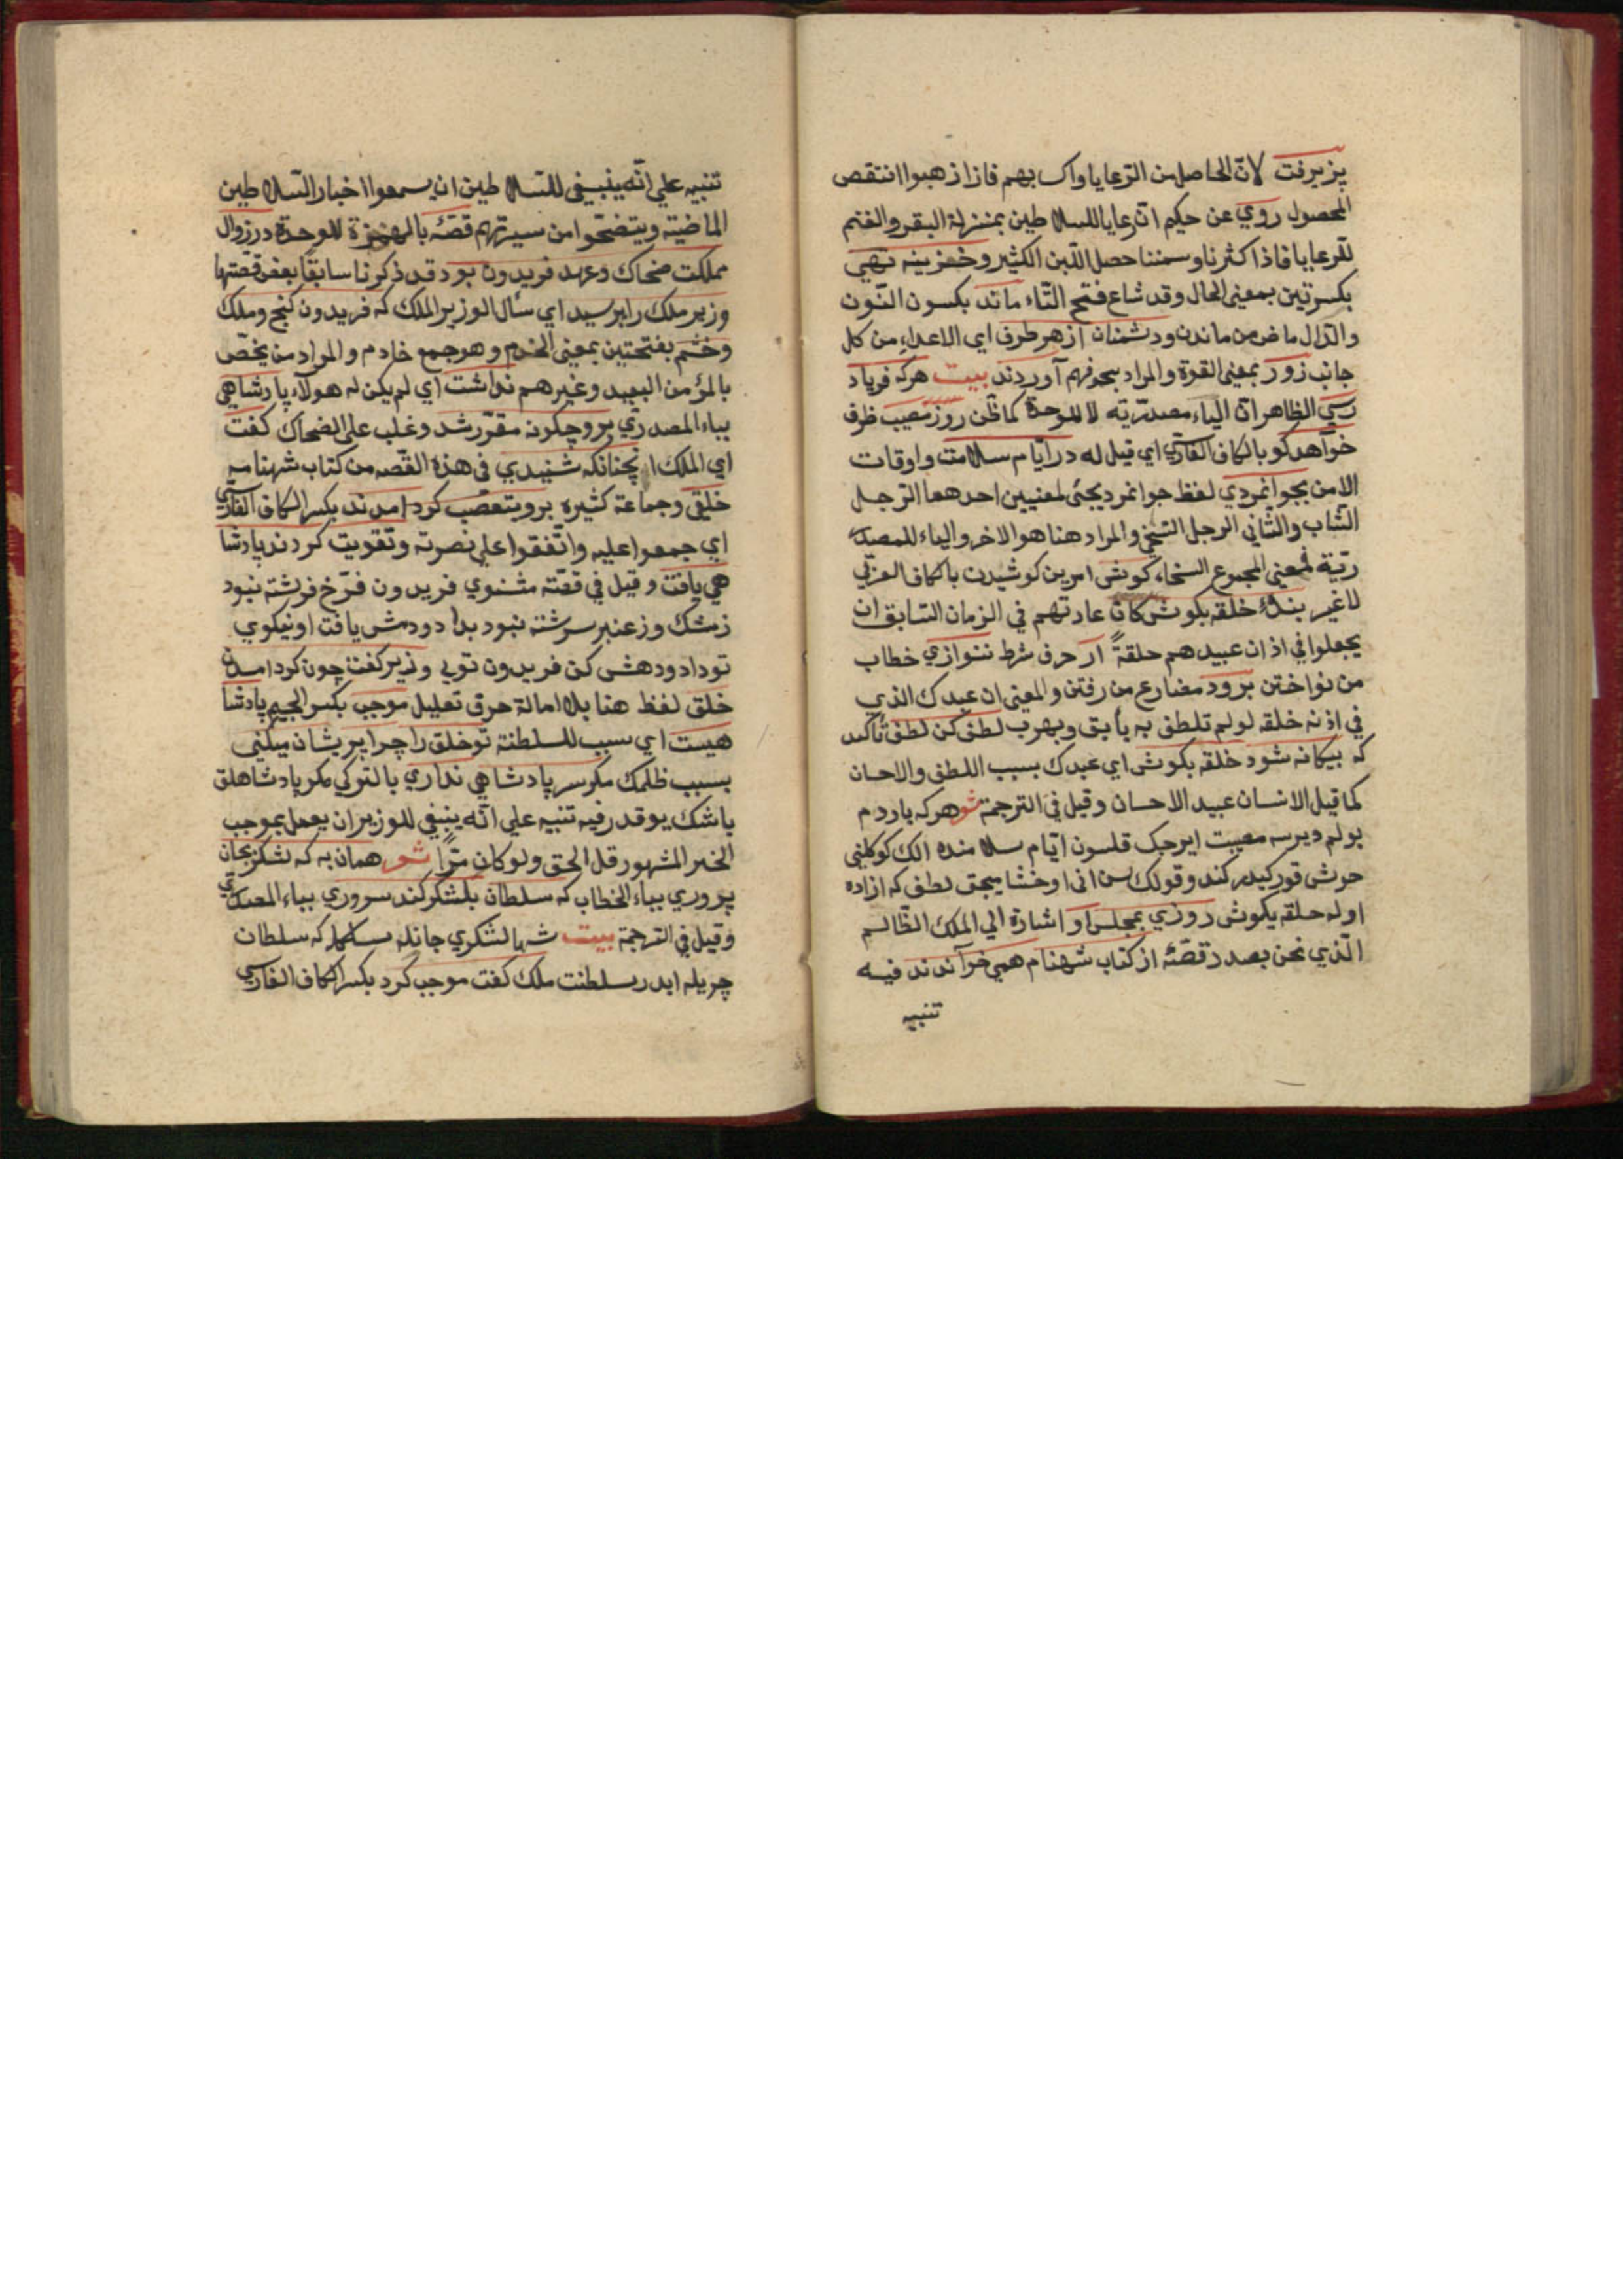 پزیرفت لانّ الحاصل من الرّعایا واکـ بهم فازاز هبوا انتقص
المحصول روي عن حکیم انّ رعایا للسلاطین بمنزلة البقر والغنم
للرعایا فاذا کثرنا وسمننا حصل اللّبن الکثیر وخزینه تهی
بکسرتین بمعنی الحال وقد شاع فتح التّاء ماند بکسون النّون
والدّال ماض من ماندن ودشمنان از هر طرف ای الاعداء من کل
جانب زور بمعنی القوة والمراد بحد فهم آوردند بیت هرکه فریاد
رسي الظاهر انّ الیاء مصدریّه لا للوحدة کما ظّن روز مصیب ظرف
خواهد کو بالکاف الفارسي ای قیل له در ایّام سلامت واوقات
الامن بجوانمردي لفظ جوانمرد یجئ لمعنیین احدهما الرّجل
الشّاب والثّاني الرجل السّخي والمراد هنا هو الاخر والیاء للمصد
ریّة فمعنی المجموع السخاء کوش امر من کوشیدن باکاف العربي
لا غیر بندهٔ خلقه بکوش کان عادتهم في الزمان السّابق ان
یجعلوا في اذان عبیدهم حلقةً ار حرف شرط ننوازي خطاب
من نواختن برود مضارع من رفتن والمعنی ان عبدك الذي
في اذنه خلقه لو لم تلطق به یأبق ویهرب لطف کن لطف تأکید
که بیکانه شود خلقه بکوش ای عبدك بسبب اللطف والاحسان
کما قیل الانسان عبید الاحسان وقیل في الترجمة شو هرکه یاردم
بولم دیرسه مصیبت ایرجک قلسون ایّام سلامنده الك کوکلنی
خوش قور کیدر کندو قولك سن انی اوخشا یجق لطف که ازاده
اوله حلقه بکوش روزي بمجلس او اشارة الي الملك الظّالم
الّذي نحن بصدد قصّهٔ از کتاب شهنام همی خواندند فیه
تنبیه
تنبیه علي انّه ینبغي للسّلاطین ان یسمعوا اخبار السّلاطین
الماضیّه ویتنصّحوا من سیرتهم قصّهٔ بالهمزة للوحدة در زوال
مملکت ضحاك وعهد فریدون بود قد ذکرنا سابقًا بعض قصّتهما
وزیر ملك را پرسید ای سأل الوزیر الملك که فریدون کنج وملك
وخشم بفتحتین بمعنی الخدم وهو جمع خادم والمراد من یختصّ
بالمؤمن العبید وغیرهم نداشت اي لم یکن له هولاء پادشاهی
بیاء المصدري برو چکونه مقرّر شد وغلب علی الضحاك کفت
اي الملك انچنانکه شنیدي في هذه القصّه من کتاب شهنامه
خلقی وجماعة کثیره برو بتعصّب کرد امدند بکسر الکاف الفارسي
اي جمعوا علیه واتّفقوا علی نصرته وتقویت کردند پادشا
هي یافت وقیل في قصّته مثنوي فریدون فرّخ فرشته نبود
زمشك وزعنبر سرشته نبود بداد ودهش یافت او نیکوي
تو داد ودهش کن فریدون توبي وزیر کفت چون کرد امدن
خلق لفظ هنا بلا امالة حرف تعلیل موجب بکسر الجیم پادشا
هیست اي سبب للسلطنة تو خلق را چرا پریشان میکنی
بسبب ظلمك مکر سر پادشاهي نداري بالتوکي مکر پادشاهلق
باشك یوقدر فیه تنبیه علي انّه ینبغي للوزیر ان یعمل بموجب
الخبر المشهور قل الحق ولو کان مرًّا شو همان به که لشکر بجان
پروري بیاء الخطاب که سلطان بلشکر کند سروري بیاء المصدري
وقیل في الترجمة بیت شها لشکري جانله بسله که سلطان
چریله ایدر سلطنت ملك کفت موجب کرد بکسر الکاف الفارسي